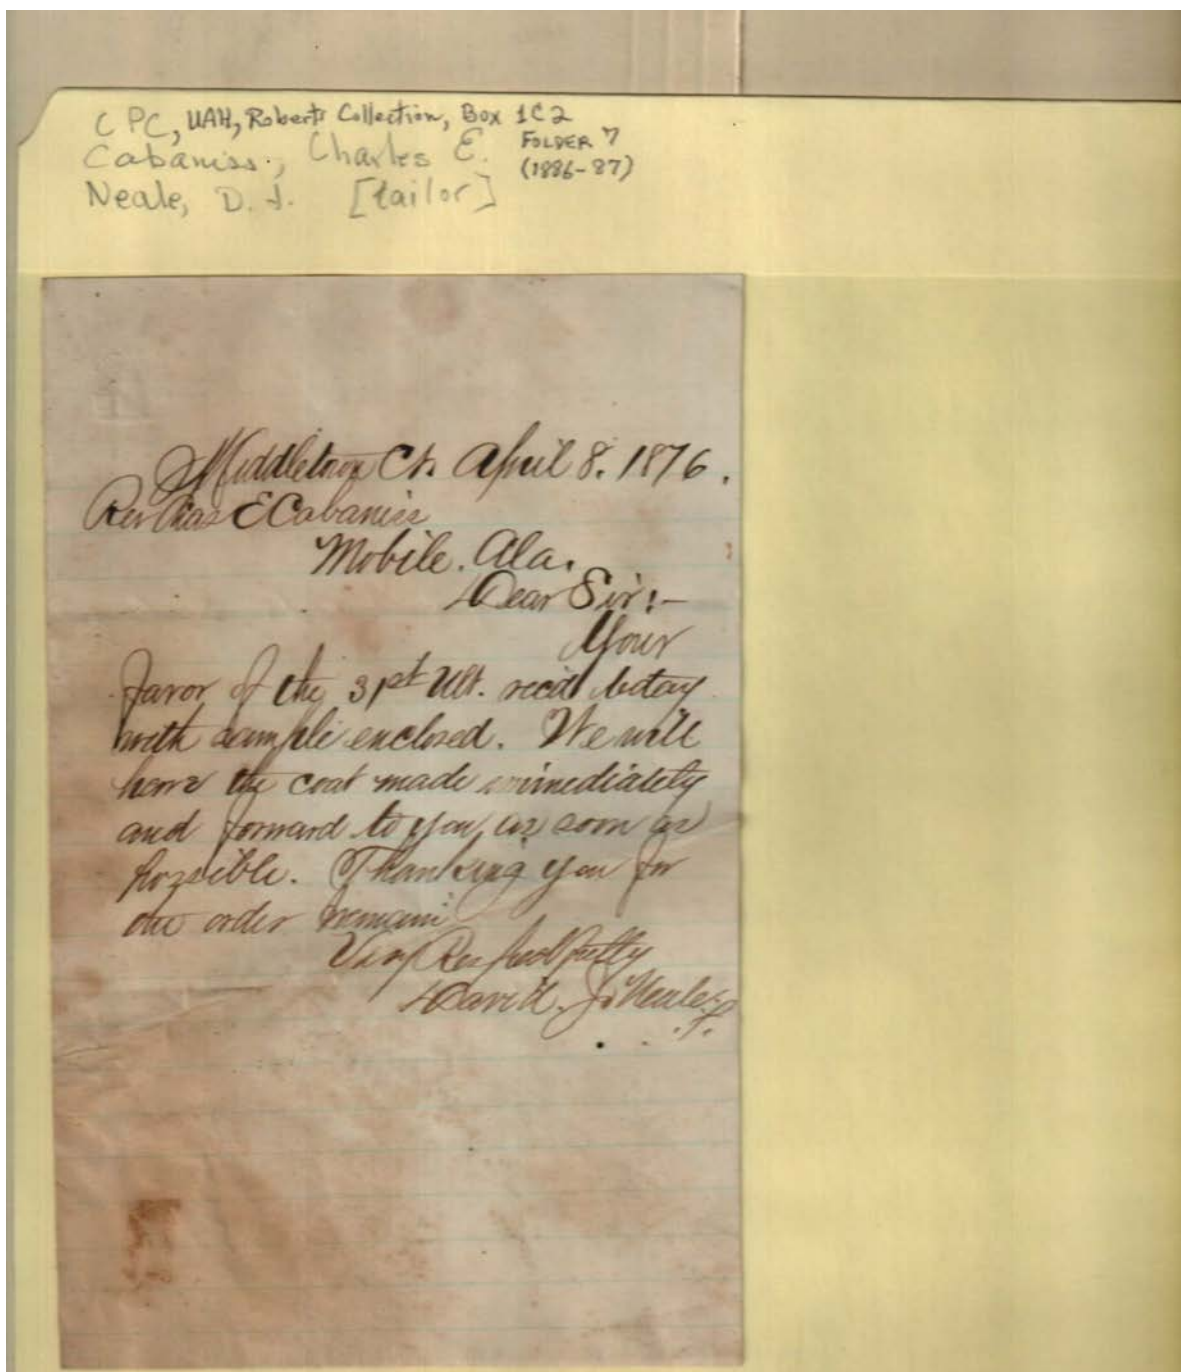 CPC, UAH, Roberts Collection, Box 1C2
FOLDER 7
Cabaniss, Charles E.
(1886-87)
Neale, D. J. [tailor]
Middletown Ct. April 8. 1876.
Rev Chas E Cabaniss
Mobile. Ala.
Dear Sir:-
Your
favor of the 31st Ult. recd today
with sample enclosed. We will
have the coat made immediately
and forward to you, as soon as
possible. Thanking you for
the order remain
Very Respectfully
David. J. Neale